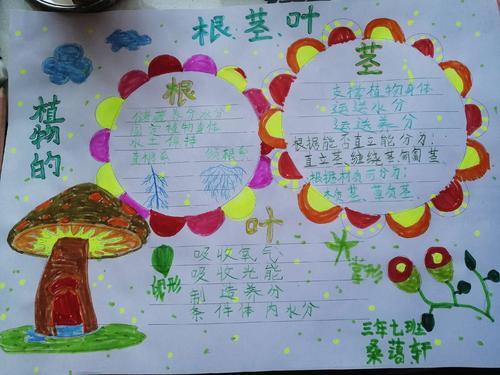 植物的
根茎叶
根
储藏养分水分
固定植物身体
水土保持
直根系 须根系
茎
支撑植物身体
运送水分
运送养分
根据能否直立能分为:
直立茎、缠绕茎、匍匐茎
根据材质可分为:
木质茎、草质茎.
叶
吸收氧气
吸收光能
制造养分
条件体内水分
卵形
掌形
三年七班
桑蕗轩